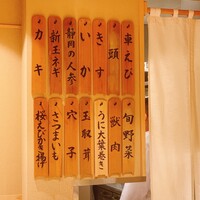 車えび
頭
きす
いか
静岡の人参
新玉ネギ
カキ
旬野菜
獣肉
うに大葉巻き
玉取茸
穴子
さつまいも
桜えびかき揚げ